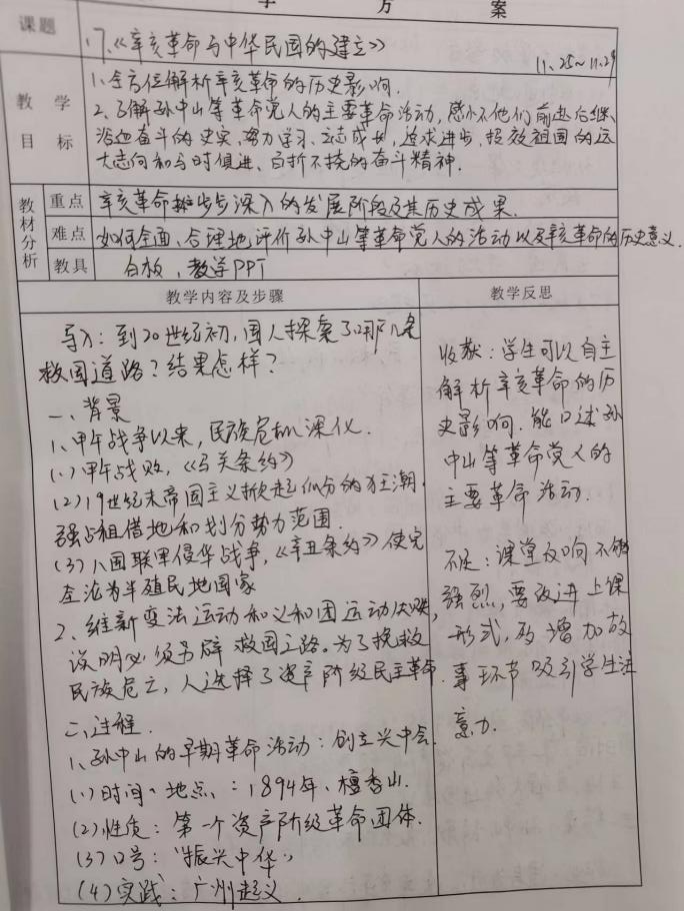 学 方 案
课题
17.《辛亥革命与中华民国的建立》
11.25~11.29
教 学
目 标
1、全方位解析辛亥革命的历史影响.
2、了解孙中山等革命党人的主要革命活动,感小不他们前赴后继、
浴血奋斗的史实,努力学习、立志成长,追求进步、投效祖国的远
大志向和与时俱进、百折不挠的奋斗精神.
教材分析
重点
辛亥革命逐步深入的发展阶段及其历史成果.
难点
如何全面、合理地评价孙中山等革命党人的活动以及辛亥革命的历史意义.
教具
白板,教学PPT
教学内容及步骤
导入:到20世纪初,国人探索了哪几条
救国道路?结果怎样?
一、背景
1、甲午战争以来,民族危机深化.
(1)甲午战败,《马关条约》
(2)19世纪末帝国主义掀起瓜分的狂潮.
强占租借地和划分势力范围.
(3)八国联军侵华战争,《辛丑条约》使完
全沦为半殖民地国家
2、维新变法运动和义和团运动失败,
说明必须另辟救国之路。为了挽救
民族危亡,人选择了资产阶级民主革命.
二、过程.
1、孙中山的早期革命活动:创立兴中会.
(1)时间、地点、:1894年、檀香山.
(2)性质:第一个资产阶级革命团体.
(3)口号:“振兴中华”
(4)实践:广州起义.
教学反思
收获:学生可以自主
解析辛亥革命的历
史影响.能口述孙
中山等革命党人的
主要革命活动.
不足:课堂反响不够
强烈,要改进上课
形式,增加故
事环节吸引学生注
意力.